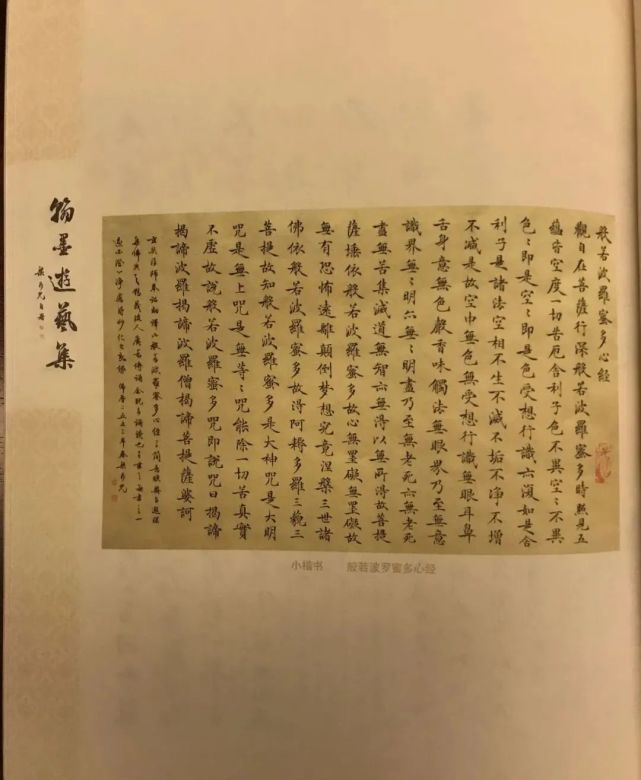 般若波羅蜜多心經
觀自在菩薩行深般若波羅蜜多時照見五
蘊皆空度一切苦厄舍利子色不異空〻不異
色〻即是空〻即是色受想行識亦復如是舍
利子是諸法空相不生不滅不垢不淨不增
不減是故空中無色無受想行識無眼耳鼻
舌身意無色聲香味觸法無眼界乃至無意
識界無〻明亦無〻明盡乃至無老死亦無老死
盡無苦集滅道無智亦無得以無所得故菩提
薩埵依般若波羅蜜多故心無罣礙無罣礙故
無有恐怖遠離顛倒夢想究竟涅槃三世諸
佛依般若波羅蜜多故得阿耨多羅三藐三
菩提故知般若波羅蜜多是大神咒是大明
咒是無上咒是無等〻咒能除一切苦真實
不虛故說般若波羅蜜多咒即說咒曰揭諦
揭諦波羅揭諦波羅僧揭諦菩提薩婆訶
翰墨遊藝集
小楷书 般若波罗蜜多心经